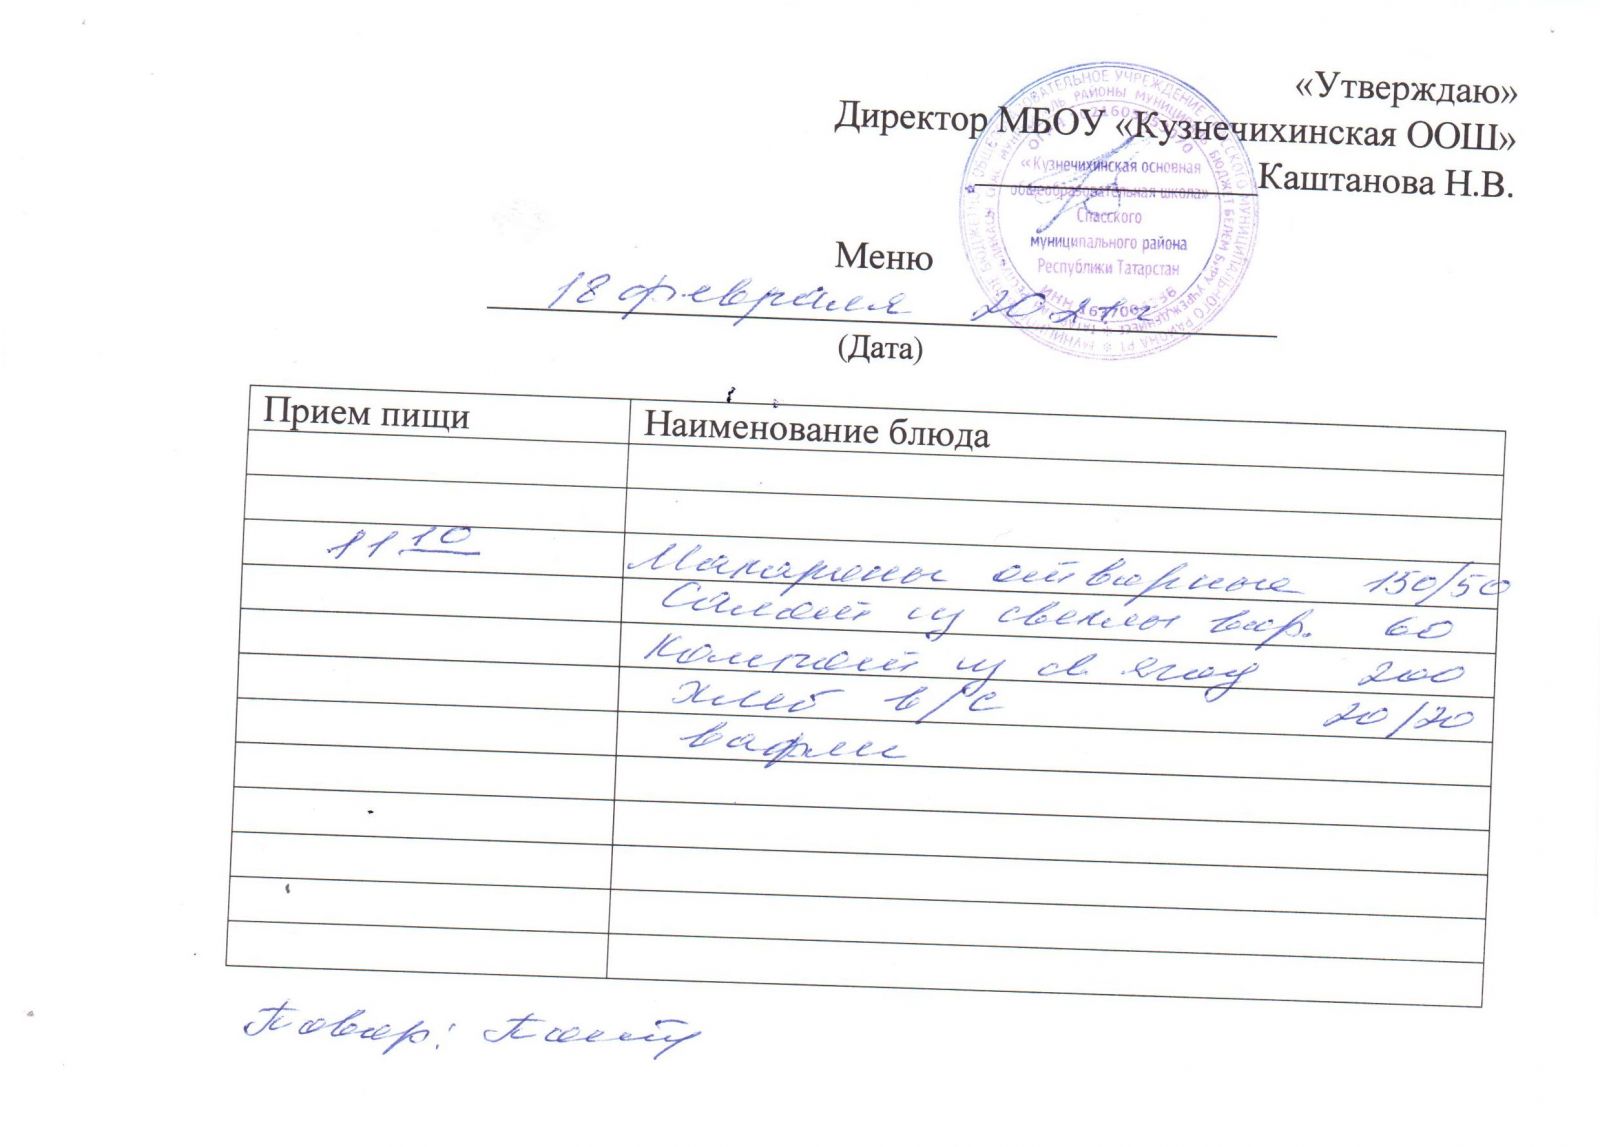 «Утверждаю»
Директор МБОУ «Кузнечихинская ООШ»
Каштанова Н.В.
«Кузнечихинская основная
общеобразовательная школа»
Спасского
муниципального района
Республики Татарстан
Меню
18 февраля 2021 г
(Дата)
Прием пищи Наименование блюда
11 10 Макароны отварные 150/50
Салат из свеклы вар. 60
Компот из св ягод 200
Хлеб в/с 20/20
вафли
Повар: